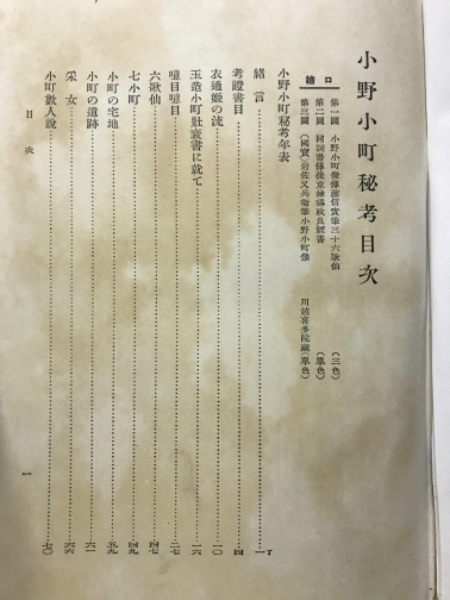 小野小町秘考目次
口繪
第一圖 小野小町像傳藤信實筆三十六歌仙 (三色)
第二圖 同詞書傳後京極攝政良經書 (單色)
第三圖 (國寶)岩佐又兵衛筆小野小町像 川越喜多院藏(單色)
小野小町秘考年表
緒言……一
考證書目……四
衣通姬の流……一〇
玉造小町壯衰書に就て……一六
噫目噫目……二七
六歌仙……四七
七小町……四九
小町の宅地……五九
小町の遺跡……六一
采女……六六
小町數人說……七〇
目次
一